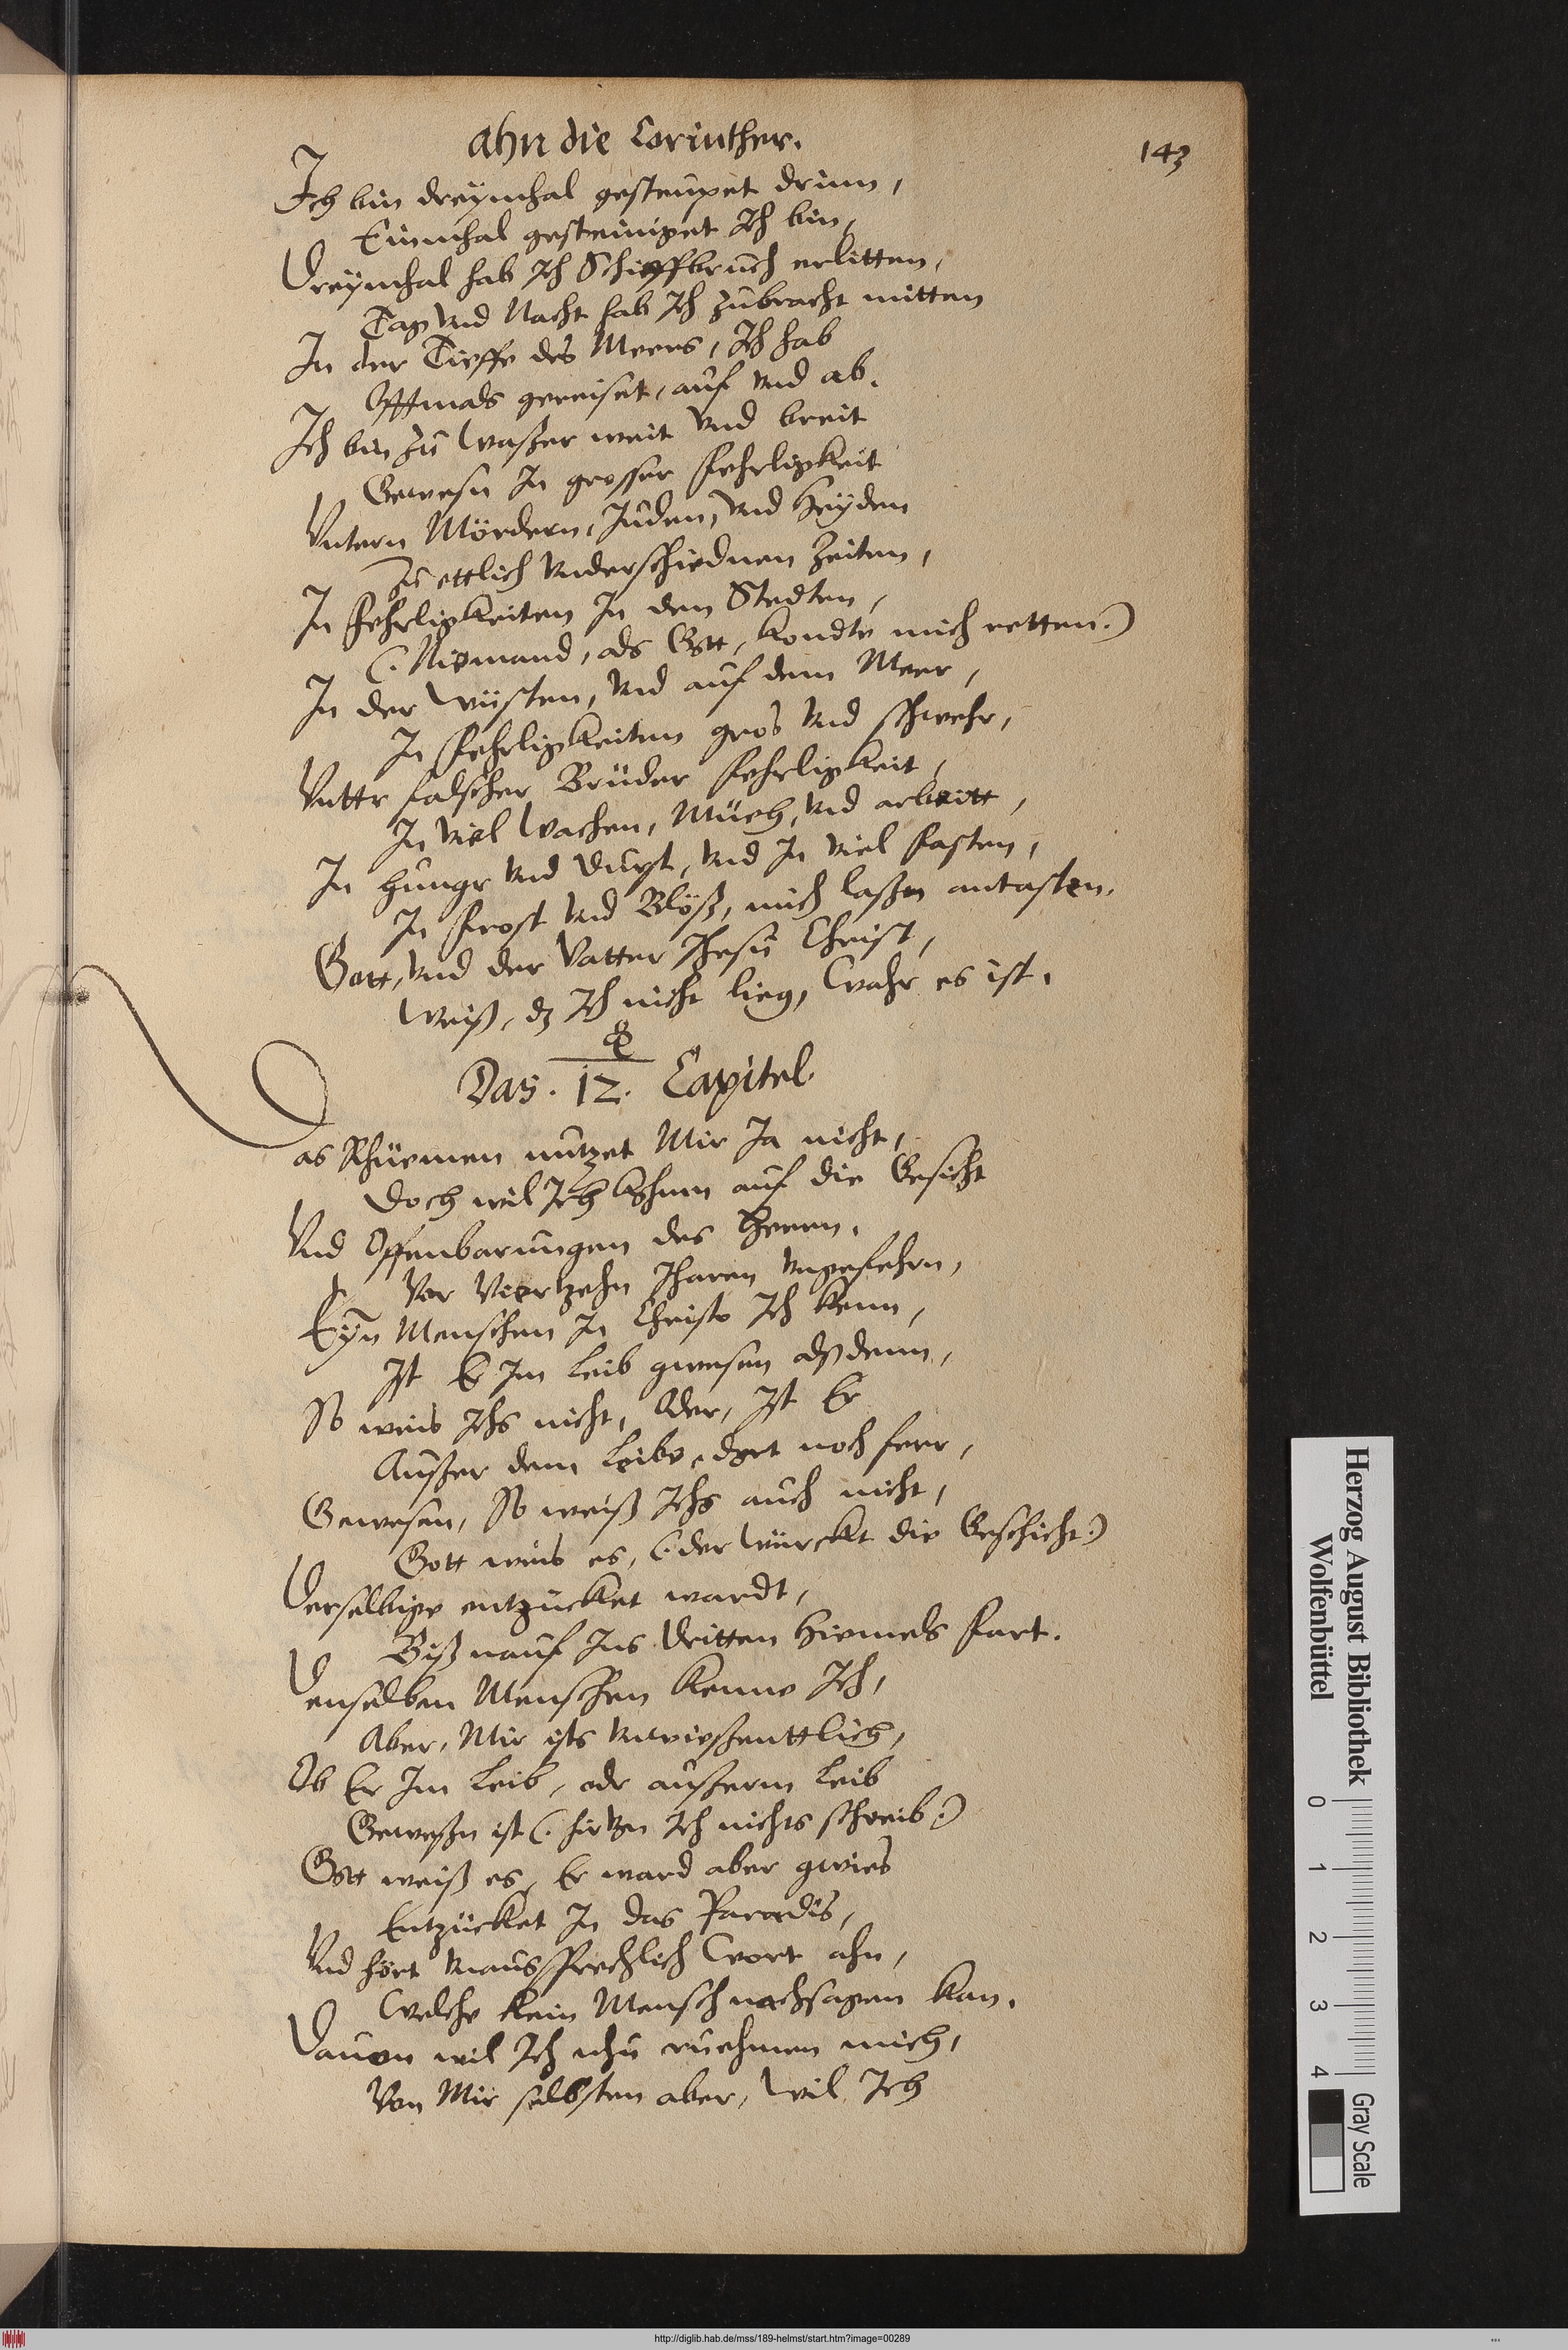 ahn die Corinther.
143
Ich bin dreymhal gesteupet drinn,
Einmhal gesteiniget Ich bin,
Dreymhal hab Ich Schieffbruch erlitten,
Tag vnd Nacht hab Ich zubracht mitten
In der Tieffe des Meers, Ich hab
Offtmals gereiset, auf vnd ab.
Ich bin zu Waßer weit vnd breit
Gewesn In grosser fehrligkeit
Vntern Mördern, Juden, vnd Heyden
Zu ettlich vnderschiednen Zeiten,
In fehrligkeiten In den Stedten,
(. Niemand, als Gott, kondte mich retten.)
In der Wüsten, vnd auf dem Meer,
In fehrligkeiten gros vnd schwehr,
Vnttr falscher Brüder fehrligkeit,
In viel Wachen, Müeh, vnd arbeitt,
In hungr vnd Durst, vnd In viel fasten,
In frost vnd Blöß, mich laßen antasten.
Gott, vnd der Vatter Jhesu Christ,
Weiß, dz Ich nicht lieg, Wahr es ist.
Das. 12. Capitel
as Rhüemen nutzet Mir Ja nicht,
Doch wil Ich khum auf die Gesicht
Vnd Offenbarungen des Herrn.
Vor Viertzehn Jharen vngefehrn,
Eyn Menschen In Christo Ich kenn,
Ist Er Im leib gwesen alßdenn,
So weis Ichs nicht, Oder, Ist Er
Außer dem Leibe, dort noch ferr,
Gewesen, So weiß Ichs auch nicht,
Gott weis es, (. der würckt die Geschicht.)
Derselbige entzücket wardt,
Biß nauf Ins dritten Hiemels fart.
Denselben Menschen kenne Ich,
Aber, Mir ists vnwießenttlich,
Ob Er Im leib, odr außerm leib
Gewesßn ist (. hirvon Ich nichts schreib.)
Gott weiß es, Er ward aber gwies
Entzücket In das Paradis,
Vnd hört vnaussprechlich Wort ahn,
Welche kein Mensch nachsagen kan.
Dauon wil Ich nhu ruehmen mich,
Von Mir selbsten aber, Wil Ich
Herzog August Bibliothek
Wolfenbüttel
0 1 2 3 4
Gray Scale
http://diglib.hab.de/mss/189-helmst/start.htm?image=00289